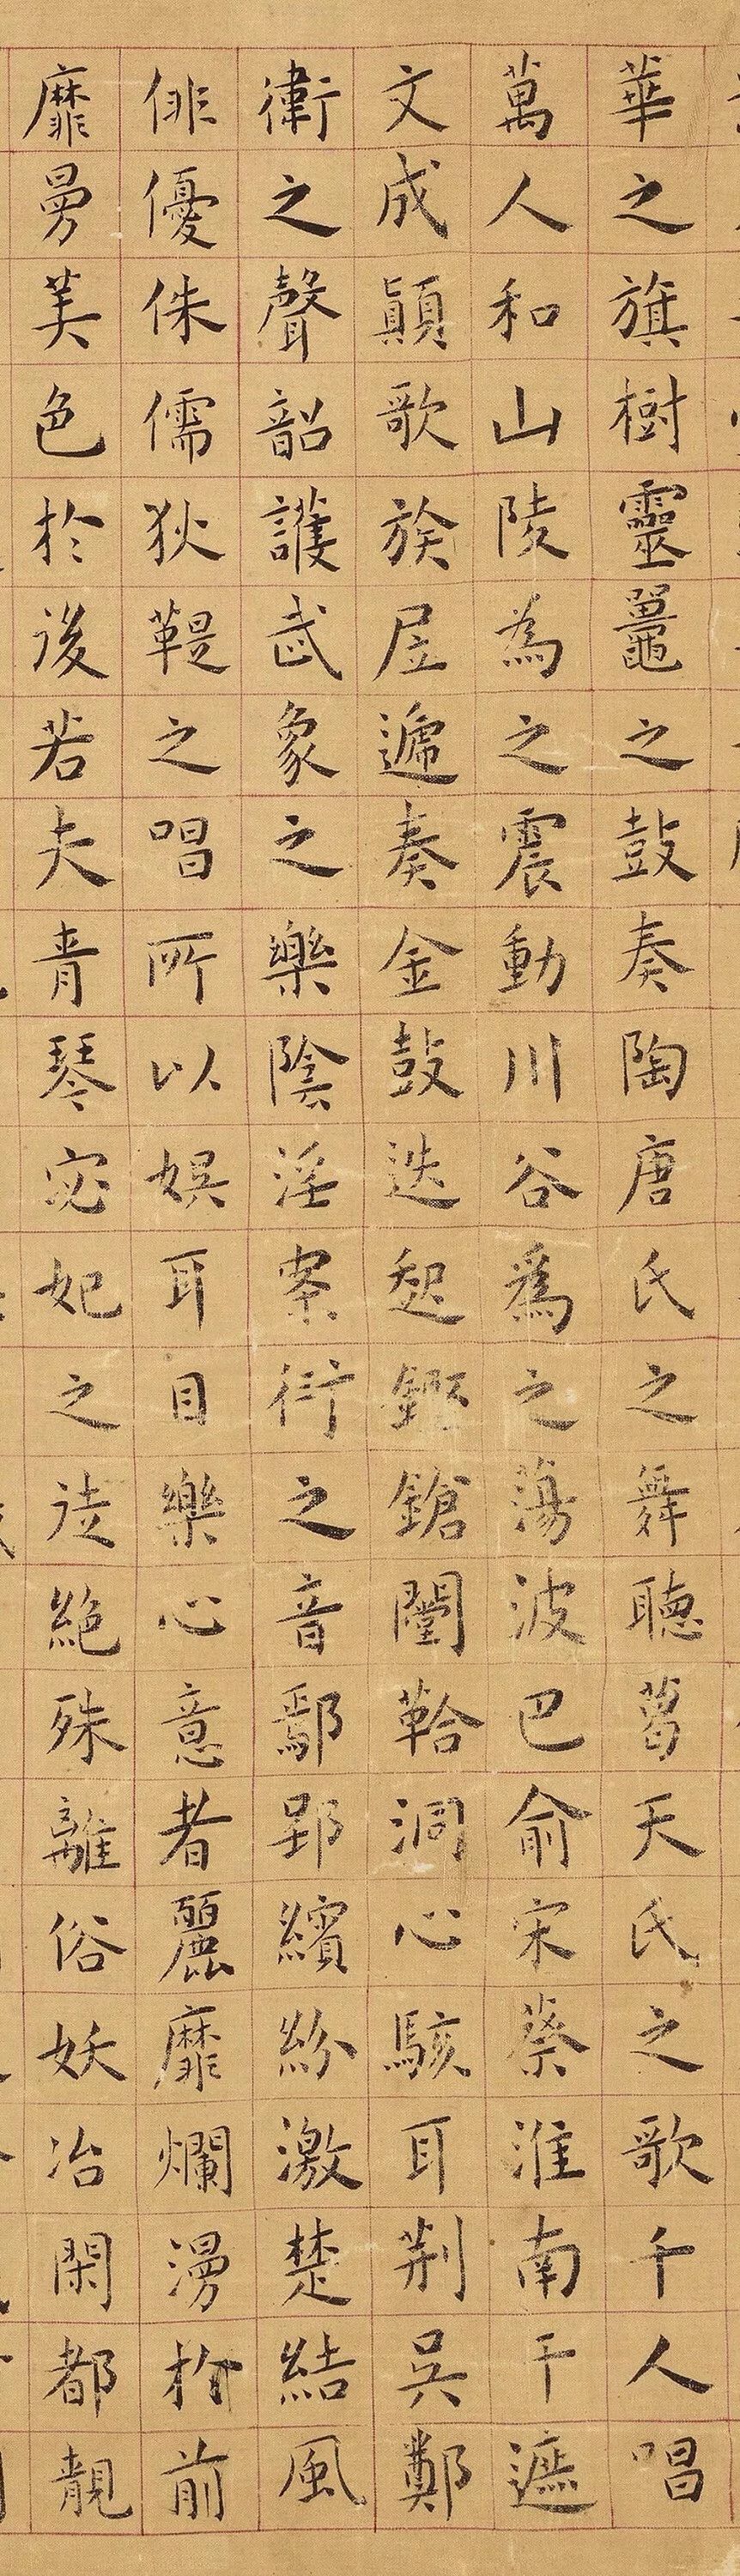 華之旗樹靈鼉之鼓奏陶唐氏之舞聽葛天氏之歌千人唱
萬人和山陵為之震動川谷爲之蕩波巴俞宋蔡淮南干遮
文成顛歌族居遞奏金鼓迭起鏗鎗闛鞈洞心駭耳荆吳鄭
衛之聲韶護武象之樂陰淫案衍之音鄢郢繽紛激楚結風
俳優侏儒狄鞮之唱所以娯耳目樂心意者麗靡爛漫於前
靡曼美色於後若夫青琴宓妃之徒絶殊離俗妖冶閑都靚